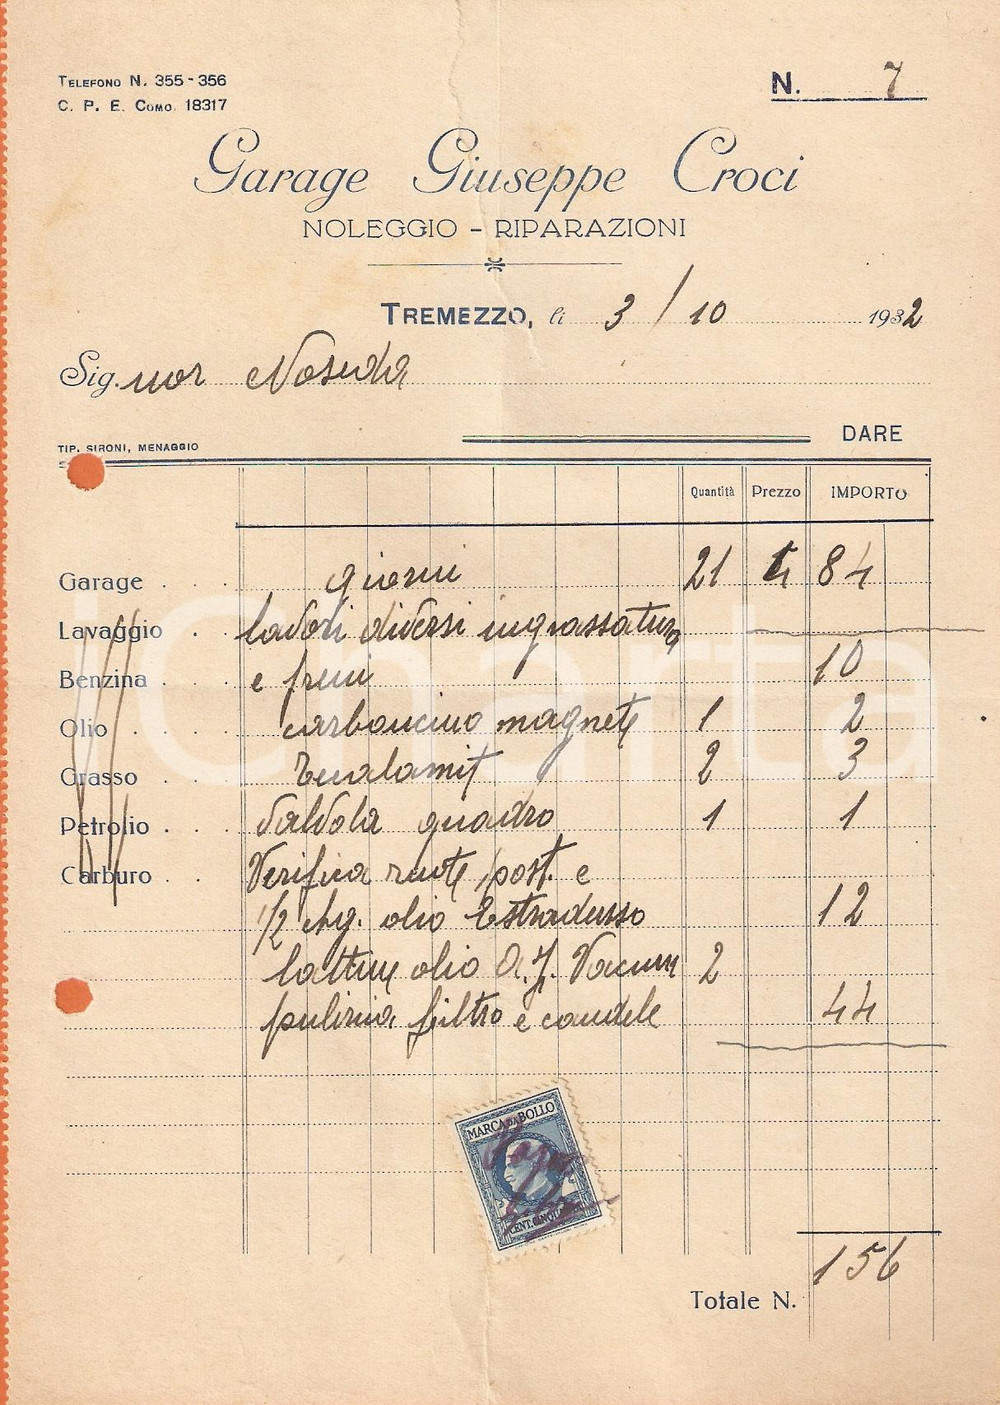 TELEFONO N. 355-356
C. P. E. COMO 18317
N. 7
Garage Giuseppe Croci
NOLEGGIO - RIPARAZIONI
TREMEZZO, li 3/10 1932
Sig.nor Noseda
TIP. SIRONI, MENAGGIO
DARE
Quantità Prezzo IMPORTO
Garage . . . giorni 21 4 84
Lavaggio . . lavori diversi ingrassatura
Benzina . . . e freni 10
Olio . . . carboncino magnete 1 2
Grasso . . . Tecalemit 2 3
Petrolio . . . Valvola quadro 1 1
Carburo . . Verifica ruote post. e
1/2 Kg. olio Estradenso 12
lattine olio Vacum 2
pulizia filtro e candele 44
MARCA DA BOLLO
CENT. CINQUANTA
156
Totale N.
iCharta